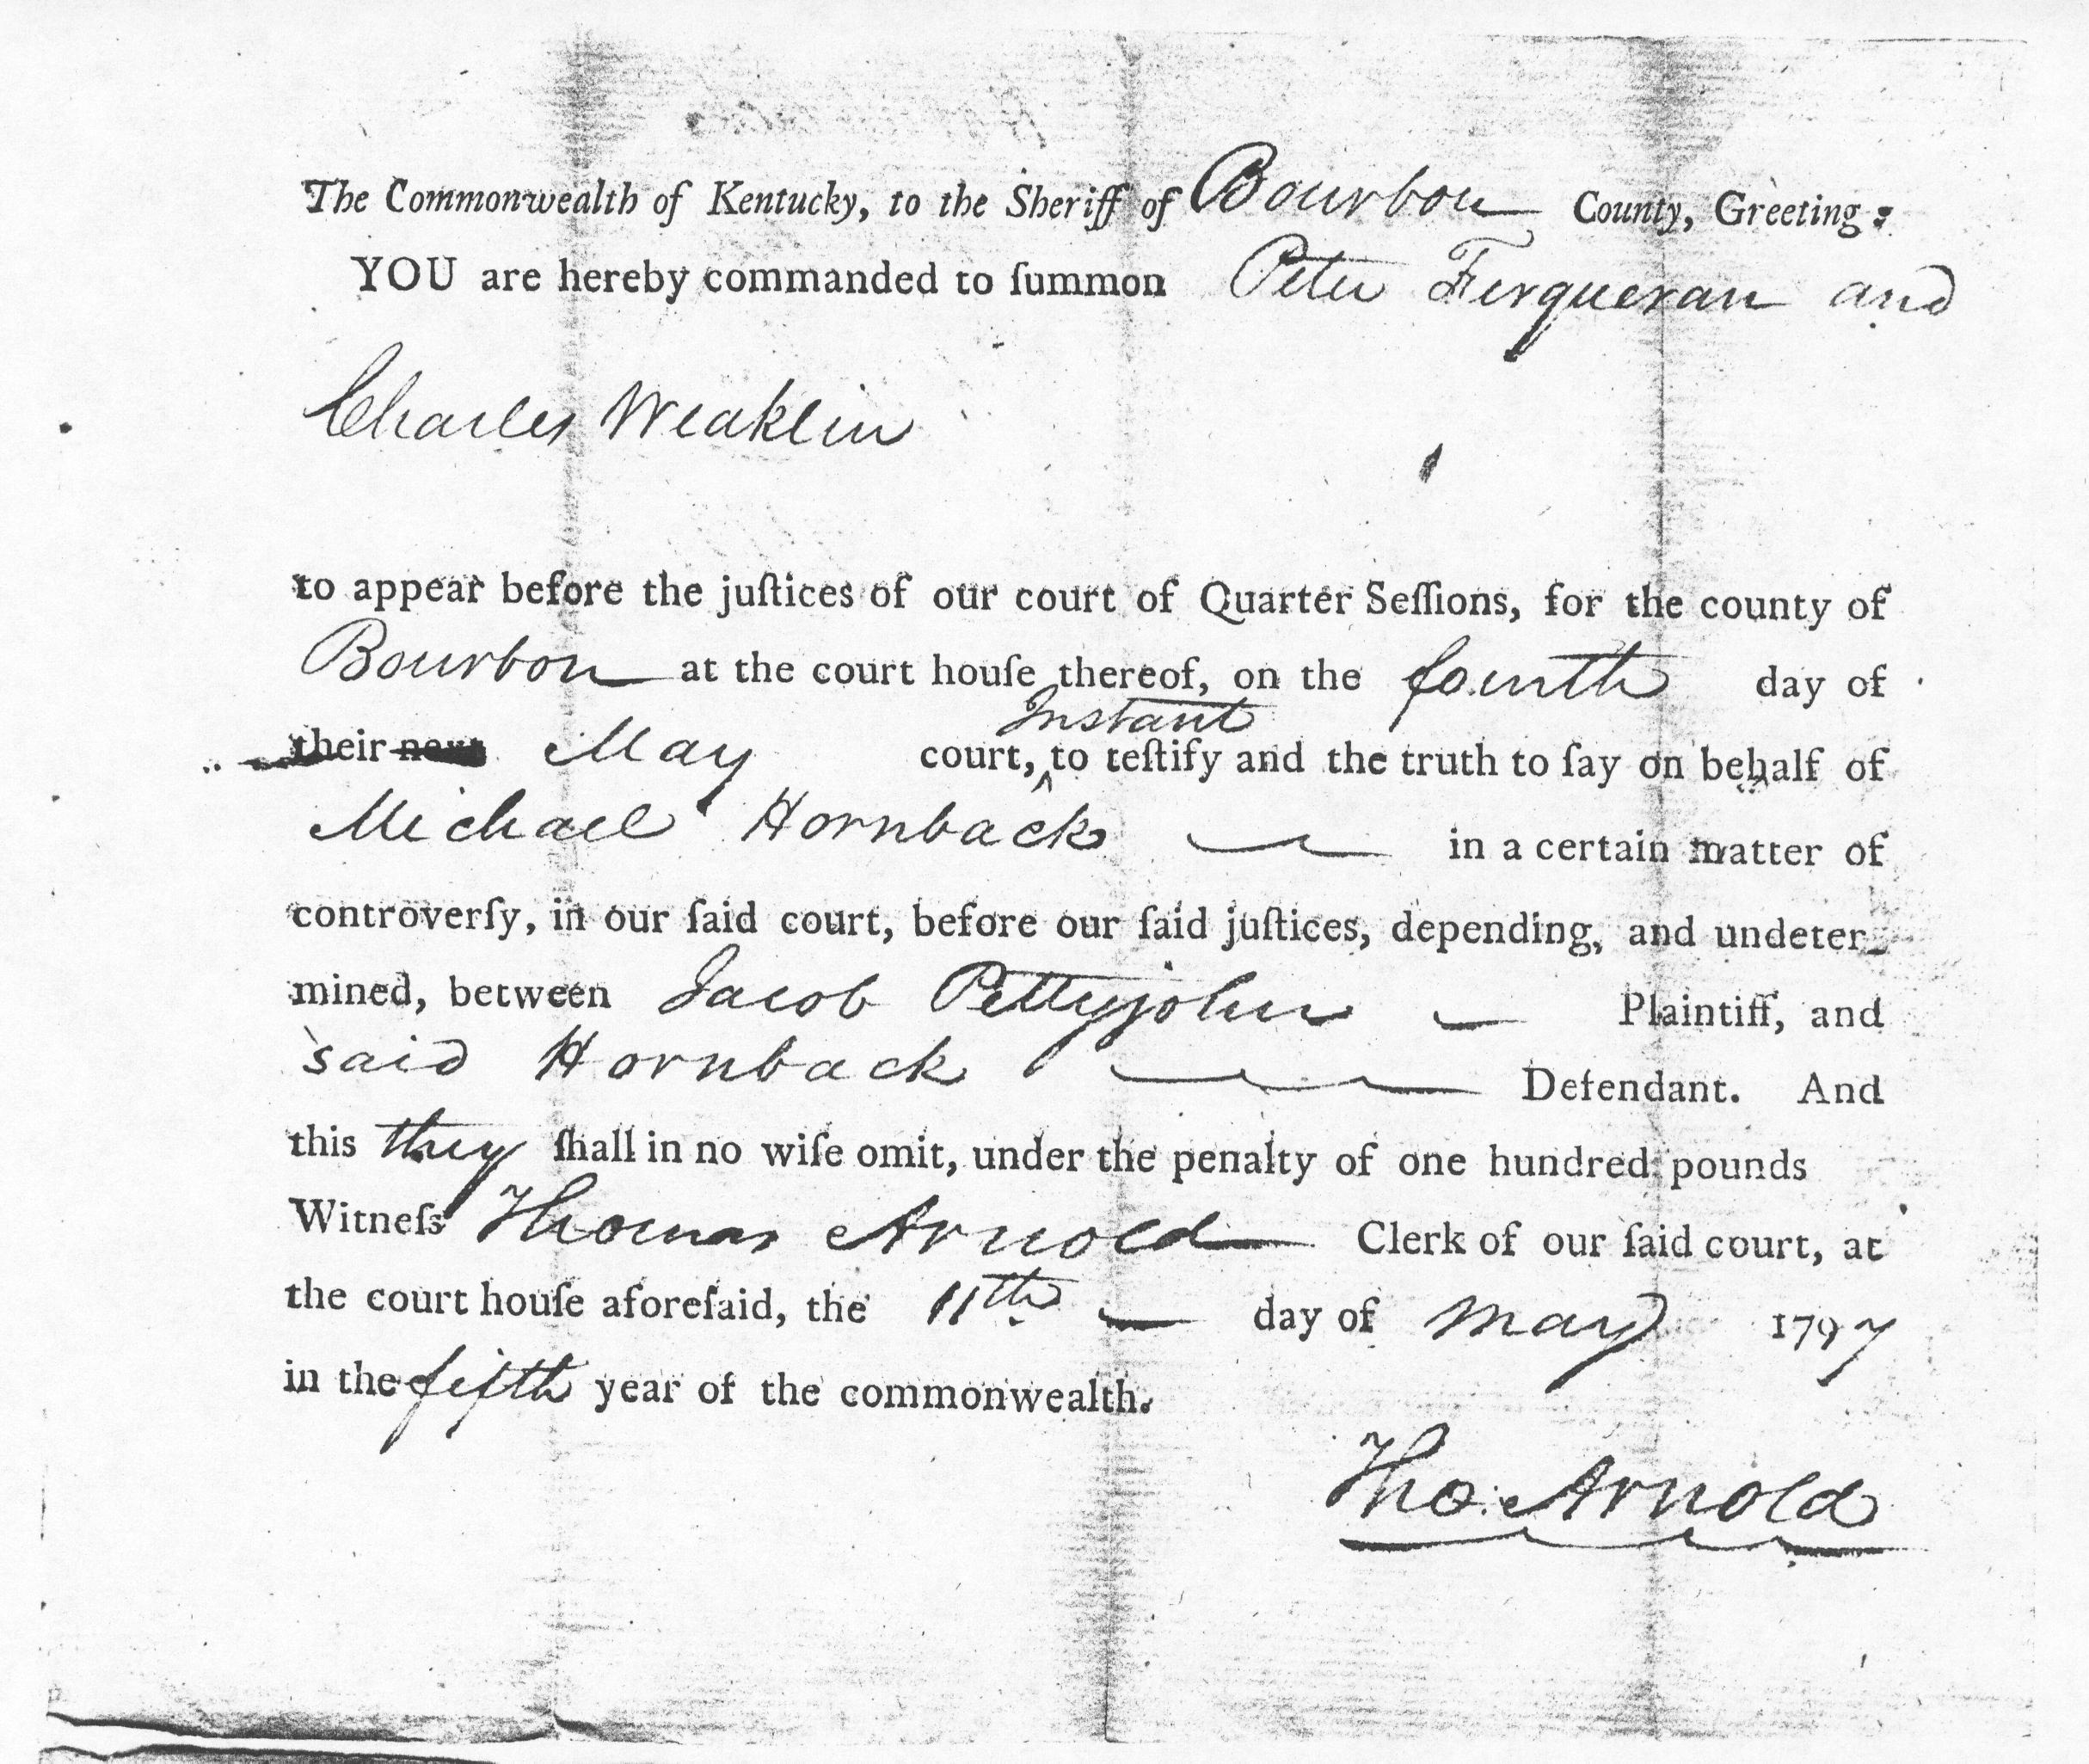 The Commonwealth of Kentucky, to the Sheriff of Bourbon County, Greeting:
YOU are hereby commanded to ſummon Peter Ferqueran and
Charles Weaklin
to appear before the juſtices of our court of Quarter Seſſions, for the county of
Bourbon at the court houſe thereof, on the fourth day of
Instant
their next May court, ^ to teſtify and the truth to ſay on behalf of
Michael Hornback in a certain matter of
controverſy, in our ſaid court, before our ſaid juſtices, depending, and undeter-
mined, between Jacob Pettyjohn Plaintiff, and
said Hornback Defendant. And
this they ſhall in no wiſe omit, under the penalty of one hundred pounds
Witneſs Thomas Arnold Clerk of our ſaid court, at
the court houſe aforeſaid, the 11th day of May 1797
in the fifth year of the commonwealth.
Tho. Arnold